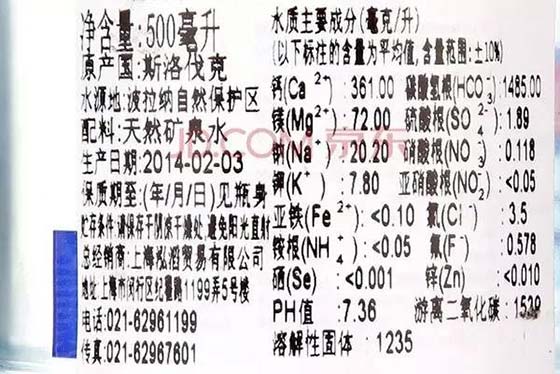 净含量:500毫升
原产国:斯洛伐克
水源地:波拉纳自然保护区
配料:天然矿泉水
生产日期:2014-02-03
保质期至:(年/月/日)见瓶身
贮存条件:请保存于阴凉干燥处,避免阳光直射
总经销商:上海泓滔贸易有限公司
地址:上海市闵行区纪翟路1199弄5号楼
电话:021-62961199
传真:021-62967601
水质主要成分(毫克/升)
(以下标注的含量为平均值,含量范围:±10%)
钙(Ca²⁺) :361.00 碳酸氢根(HCO₃⁻):1485.00
镁(Mg²⁺):72.00 硫酸根(SO₄²⁻):1.89
钠(Na⁺) :20.20 硝酸根(NO₃⁻) :0.118
钾(K⁺) :7.80 亚硝酸根(NO₂⁻):<0.05
亚铁(Fe²⁺):<0.10 氯(Cl⁻) :3.5
铵根(NH₄⁺):<0.05 氟(F⁻) :0.578
硒(Se) :<0.001 锌(Zn) :<0.010
PH值 :7.36 游离二氧化碳:
溶解性固体 :1235
JD.COM 京东